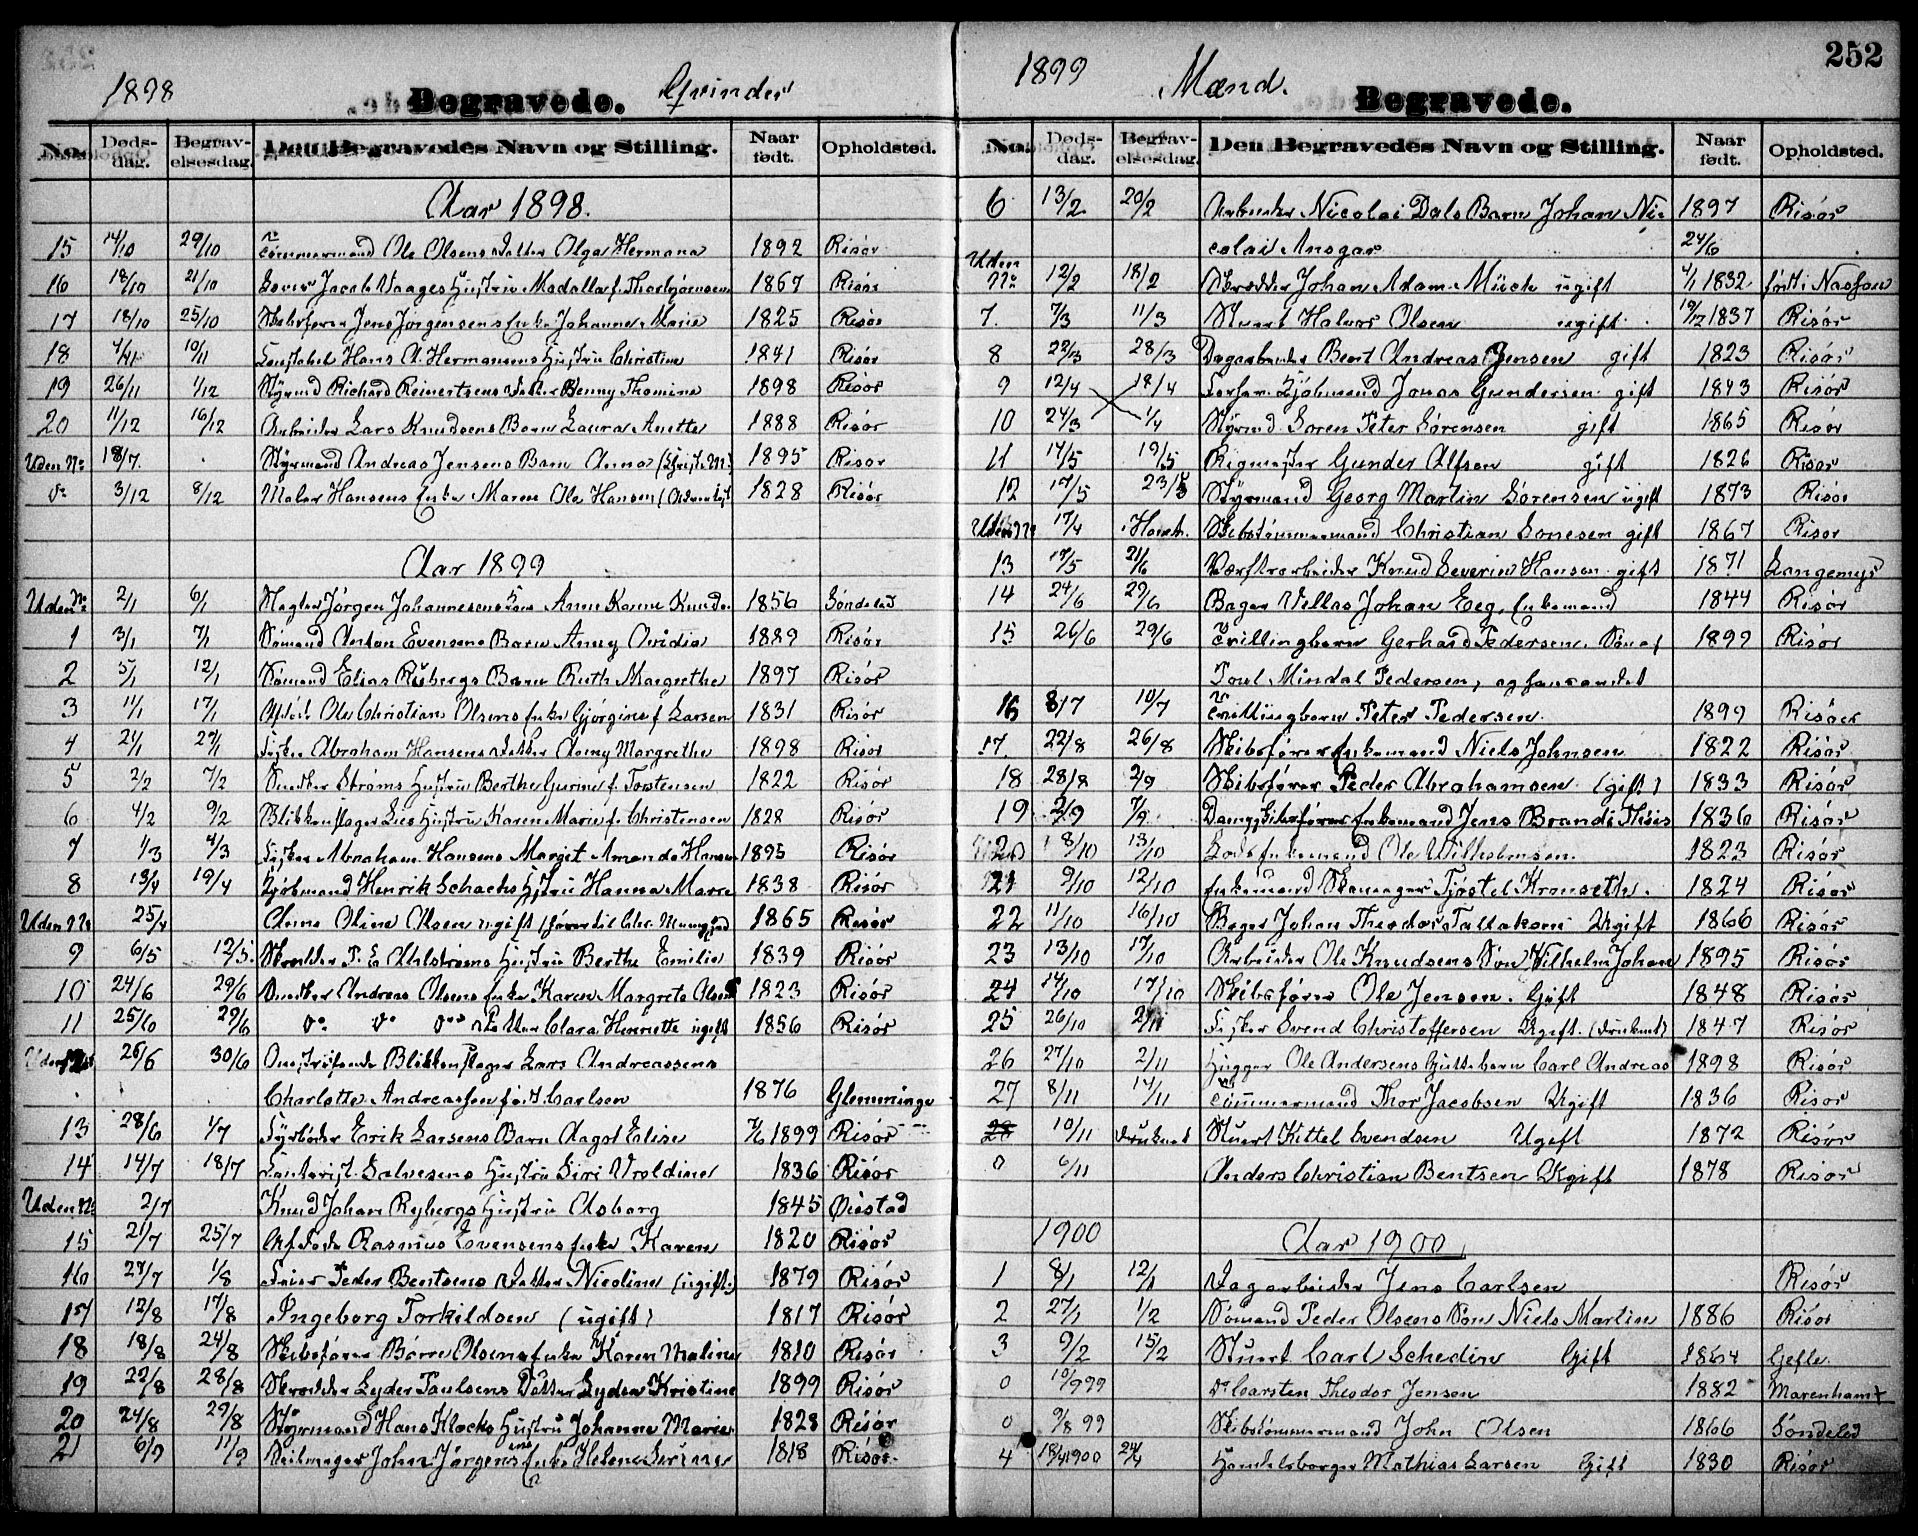 252
1898 Begravede. Qvinder
No. Døds-dag. Begrav-elsesdag. Den Begravedes Navn og Stilling. Naar født. Opholdsted.
Aar 1898.
15 14/10 29/10 Tømmermand Ole Olsens Datter Olga Hermana 1892 Risør
16 18/10 21/10 Jacob Vaages Hustru Madalla f. Thorbjørnsen 1867 Risør
17 18/10 25/10 Skibsfører Jens Jørgensens Enke Johanne Marie 1825 Risør
18 4/11 10/11 Hans A. Hermansens Hustru Christine 1841 Risør
19 26/11 1/12 Styrmd Richard Reinertsens Datter Benny Thomine 1898 Risør
20 11/12 16/12 Arbeider Lars Knudsens Barn Laura Anette 1888 Risør
Uden No 18/7. Styrmand Andreas Jensens Barn Anna 1895 Risør
do 3/12 8/12 Maler Hansens Enke Maren Ole Hansen 1828 Risør
Aar 1899
Uden No 2/1 6/1 Jørgen Johannesens Anne Karine 1856 Søndeled
1 3/1 7/1 Sømand Anton Evensens Barn Anny Ovidia 1889 Risør
2 5/1 12/1 Sømand Elias Rübergs Barn Ruth Margrethe 1897 Risør
3 11/1 17/1 Ole Christian Olsens Enke Gjørgine f Larsen 1831 Risør
4 21/1 27/1 Fisker Abraham Hansens Datter Margrethe 1898 Risør
5 2/2 7/2 Snedker Strøms Hustru Berthe Gurine f. Torstensen 1822 Risør
6 4/2 9/2 Blikkenslager Lies Hustru Karen Marie f. Christensen 1828 Risør
7 1/3 4/3 Fisker Abraham Hansens Margit Amanda Hansen 1895 Risør
8 13/4 19/4 Kjøbmand Henrik Schachs Hustru Hanna Marie 1838 Risør
Uden No 25/4 Oline Olsen ugift 1865 Risør
9 6/5 12/5 Skredder P. E Ahlstrøms Hustru Berthe Emilie 1839 Risør
10 24/6 29/6 Snedker Andreas Olsens Enke Karen Margrete Olsen 1823 Risør
11 25/6 29/6 do do do Datter Clara Henriette ugift 1856 Risør
Uden No 26/6 30/6 Blikkenslager Lars Andreassens
Charlotte Andreassen født Carlsen 1876 Glemminge
13 28/6 1/7 Fyrbøder Erik Larsens Barn Aagot Elise 7/6 1899 Risør
14 14/7 18/7 Salvesens Hustru Siri Uroldine 1836 Risør
Uden No 2/7 Knud Johan Rybergs Hustru Asborg 1845 Øiestad
15 21/7 25/7 Afdøde Rasmus Evensens Enke Karen 1820 Risør
16 27/7 1/8 Peder Bentsens Datter Nicoline (ugift) 1879 Risør
17 12/8 17/8 Ingeborg Torkildsen (ugift) 1817 Risør
18 18/8 24/8 Skibsfører Børre Olsens Enke Karen Maline 1810 Risør
19 22/8 28/8 Skredder Lyder Paulsens Datter Lyden Kristine 1899 Risør
20 24/8 29/8 Styrmand Hans Klocks Hustru Johanne Marie 1828 Risør
21 6/9 11/9 Seilmager John Jørgensens Enke Helene Serine 1818 Risør
1899 Mænd. Begravede.
No. Døds-dag. Begrav-elsesdag. Den Begravedes Navn og Stilling. Naar født. Opholdsted.
6 13/2 20/2 Arbeider Nicolai Dals Barn Johan Ni- 1897 Risør
colai Ansgar 24/6
Uden No 12/2 18/2 Skredder Johan Adam Mück ugift 4/1 1832 født i Nassau
7. 7/3 11/3 Stuert Halvor Olsen ugift 19/12 1837 Risør
8 22/3 28/3 Dagarbeider Bent Andreas Jensen gift 1823 Risør
9 12/4 18/4 Kjøbmand Jonas Gundersen gift 1843 Risør
10 24/3 1/4 Styrmd Soren Peter Sørensen gift 1865 Risør
11 14/5 19/5 Rigmester Gunder Alfsen gift 1826 Risør
12 17/5 23/5 Styrmand Georg Martin Sørensen ugift 1873 Risør
Uden No 17/4 Skibstømmermand Christian gift 1867 Risør
13 17/5 21/6 Værftsarbeider Knud Severin Hansen gift 1871 Langemyr
14 24/6 29/6 Bager Johan Eeg, Enkemand 1844 Risør
15 26/6 29/6 Tvillingbarn Gerhard Pedersen. Søn af 1899 Risør
Mindal Pedersen,
16 8/7 10/7 Tvillingbarn Peter Pedersen. 1899 Risøer
17. 22/8 26/8 Skibsfører Enkemand Niels Johnsen 1822 Risør
18 28/8 2/9 Skibsfører Peder Abrahamsen (gift) 1833 Risør
19 2/9 7/9 Enkemand Jens Brandt Thiis 1836 Risør
20 8/10 13/10 Lods Enkemand Ole Wilhelmsen. 1823 Risør
21 9/10 12/10 Enkemand Skomager Tjøstel Kronseth. 1824 Risør
22 11/10 16/10 Bager Johan Theodor Tallaksen Ugift 1866 Risør
23 13/10 17/10 Arbeider Ole Knudsens Søn Vilhelm Johan 1895 Risør
24 14/10 17/10 Skibsfører Ole Jensen. Gift 1848 Risør
25 26/10 Fisker Svend Christoffersen Ugift. (druknet) 1847 Risør
26 27/10 2/11 Hugger Ole Andersens Guttebarn Carl Andreas 1898 Risør
27 8/11 14/11 Tømmermand Thor Jacobsen Ugift 1836 Risør
28 10/11 druknet Stuert Kittel Svendsen Ugift 1872 Risør
0 6/11 Anders Christian Bentsen Ugift 1878 Risør
1900 Aar 1900
1 8/1 12/1 Dagarbeider Jens Carlsen Risør
2 27/1 1/2 Sømand Peder Olsens Søn Niels Martin 1886 Risør
3 9/2 15/2 Stuert Carl Schedin Gift 1864 Gefle
0 Carsten Theodor Jensen 1882
0 9/8 99 Skibstømmermand John Olsen 1866 Søndeled
4 18/4 1900 24/4 Handelsborger Mathias Larsen Gift 1830 Risør